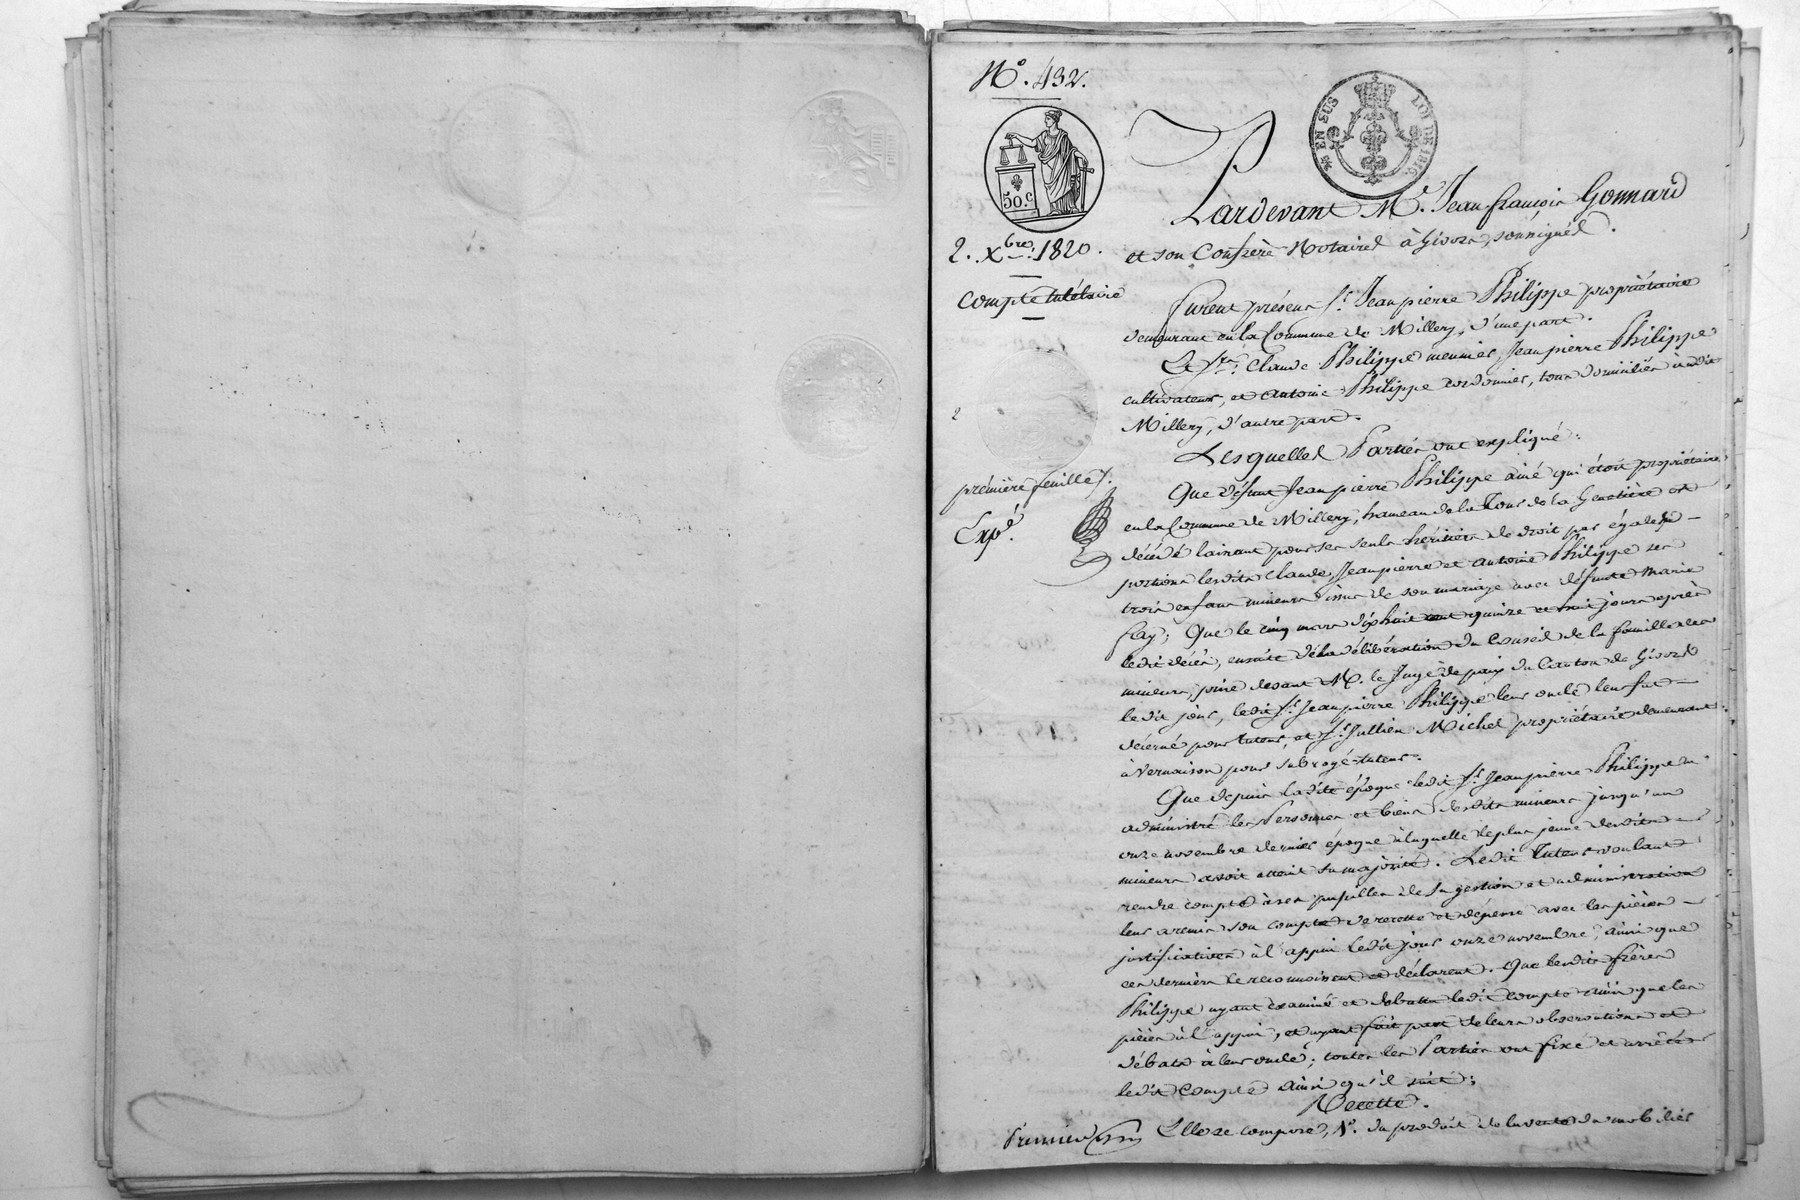 N.° 432.
¼ EN SUS LOI DE 1816.
50.c
Pardevant M.e Jean françois Gonnard
2. Xbre 1820.
et son Confrère Notaires à Givors, soussignés.
compte tutélaire
furent présens s.r Jean pierre Philippe propriétaire
demeurant en la Commune de Millery, d'une part.
Et s.rs Claude Philippe meunier, Jean pierre Philippe
cultivateur, et antoine Philippe cordonnier, tous domiciliés audit
2
Millery, d'autre part.
Lesquelles Parties ont expliqué:
première feuille
Que défunt Jean pierre Philippe ainé qui étoit propriétaire
en la Commune de Millery, hameau de la Tour de la Genetière est
Expé.
décédé laissant pour ses seuls héritiers de droit par égales
portions lesdits Claude, Jean pierre et antoine Philippe ses
trois enfans mineurs issus de son mariage avec défunte Marie
fay; Que le cinq mars dix huit cent quinze et huit jours après
ledit décès, ensuite de la délibération du Conseil de la famille des
mineurs, prise devant M. le Juge de paix du Canton de Givors
ledit jour, ledit s.r Jean pierre Philippe leur oncle leur fut
décerné pour tuteur, et s.r Jullien Michel propriétaire demeurant
à Vernaison pour subrogé tuteur.
Que depuis ladite époque ledit s.r Jean pierre Philippe a
administré les Personnes et biens desdits mineurs jusqu'au
onze novembre dernier époque à laquelle le plus jeune desdits
mineurs avoit atteint sa majorité. Ledit Tuteur voulant
rendre compte à ses pupilles de sa gestion et administration
leur a remis son compte de recette et dépense avec les pièces
justificatives à l'appui ledit jour onze novembre, ainsi que
ces derniers le reconnoissent et déclarent. Que lesdits frères
Philippe ayant examiné et débattu ledit compte ainsi que les
pièces à l'appui, et ayant fait part de leurs observations et
débats à leur oncle; toutes les Parties ont fixé et arrêté
ledit compte ainsi qu'il suit:
Recette.
Premier Elle se compose, 1°. du produit de la vente du mobilier